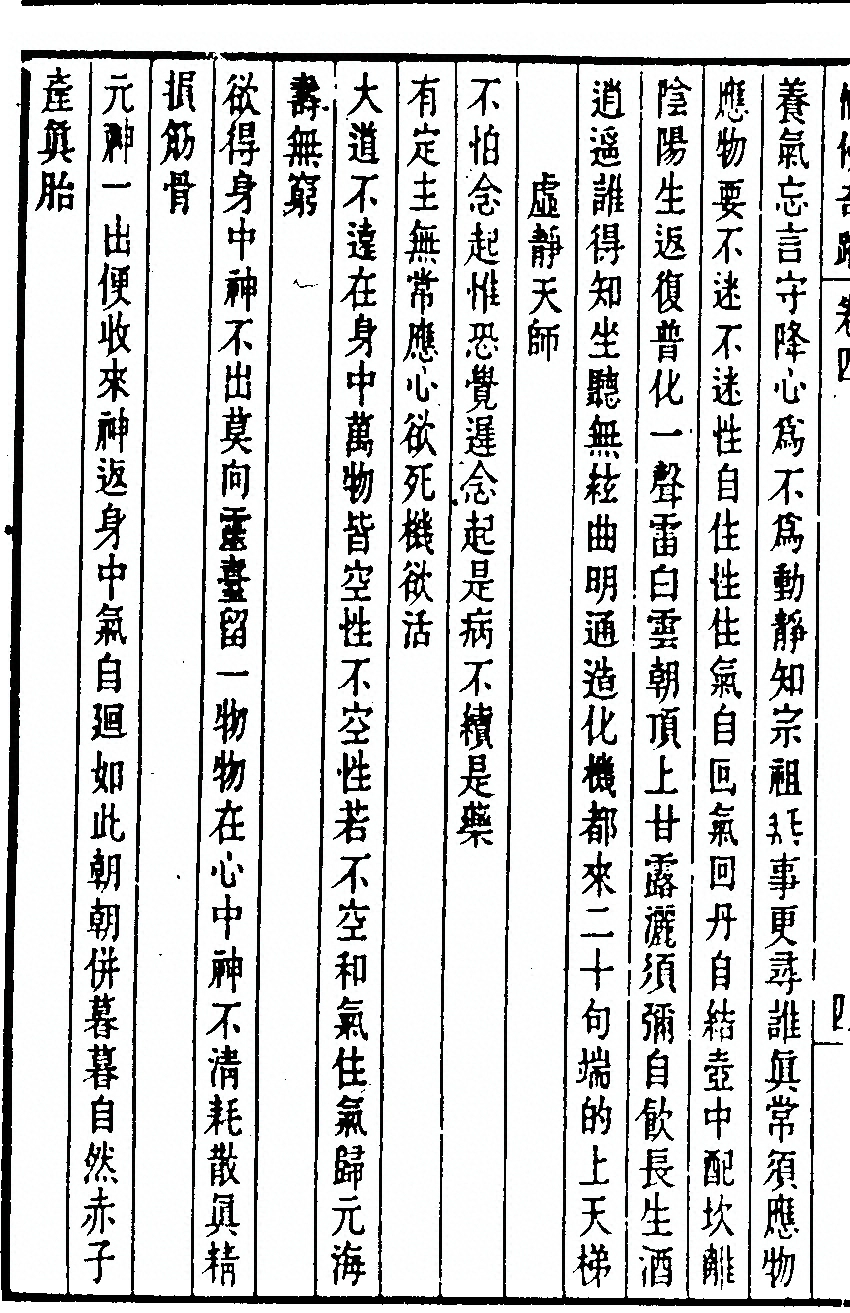 卷四
四
養氣忘言守降心爲不爲動靜知宗祖無事更尋誰眞常須應物
應物要不迷不迷性自住性住氣自回氣回丹自結壺中配坎離
陰陽生返復普化一聲雷白雲朝頂上甘露灑須彌自飮長生酒
逍遥誰得知坐聽無絃曲明通造化機都來二十句端的上天梯
虛靜天師
不怕念起惟恐覺遲念起是病不續是藥
有定主無常應心欲死機欲活
大道不遠在身中萬物皆空性不空性若不空和氣住氣歸元海
壽無窮
欲得身中神不出莫向靈臺留一物物在心中神不清耗散眞精
損筋骨
元神一出便收來神返身中氣自廻如此朝朝併暮暮自然赤子
產眞胎